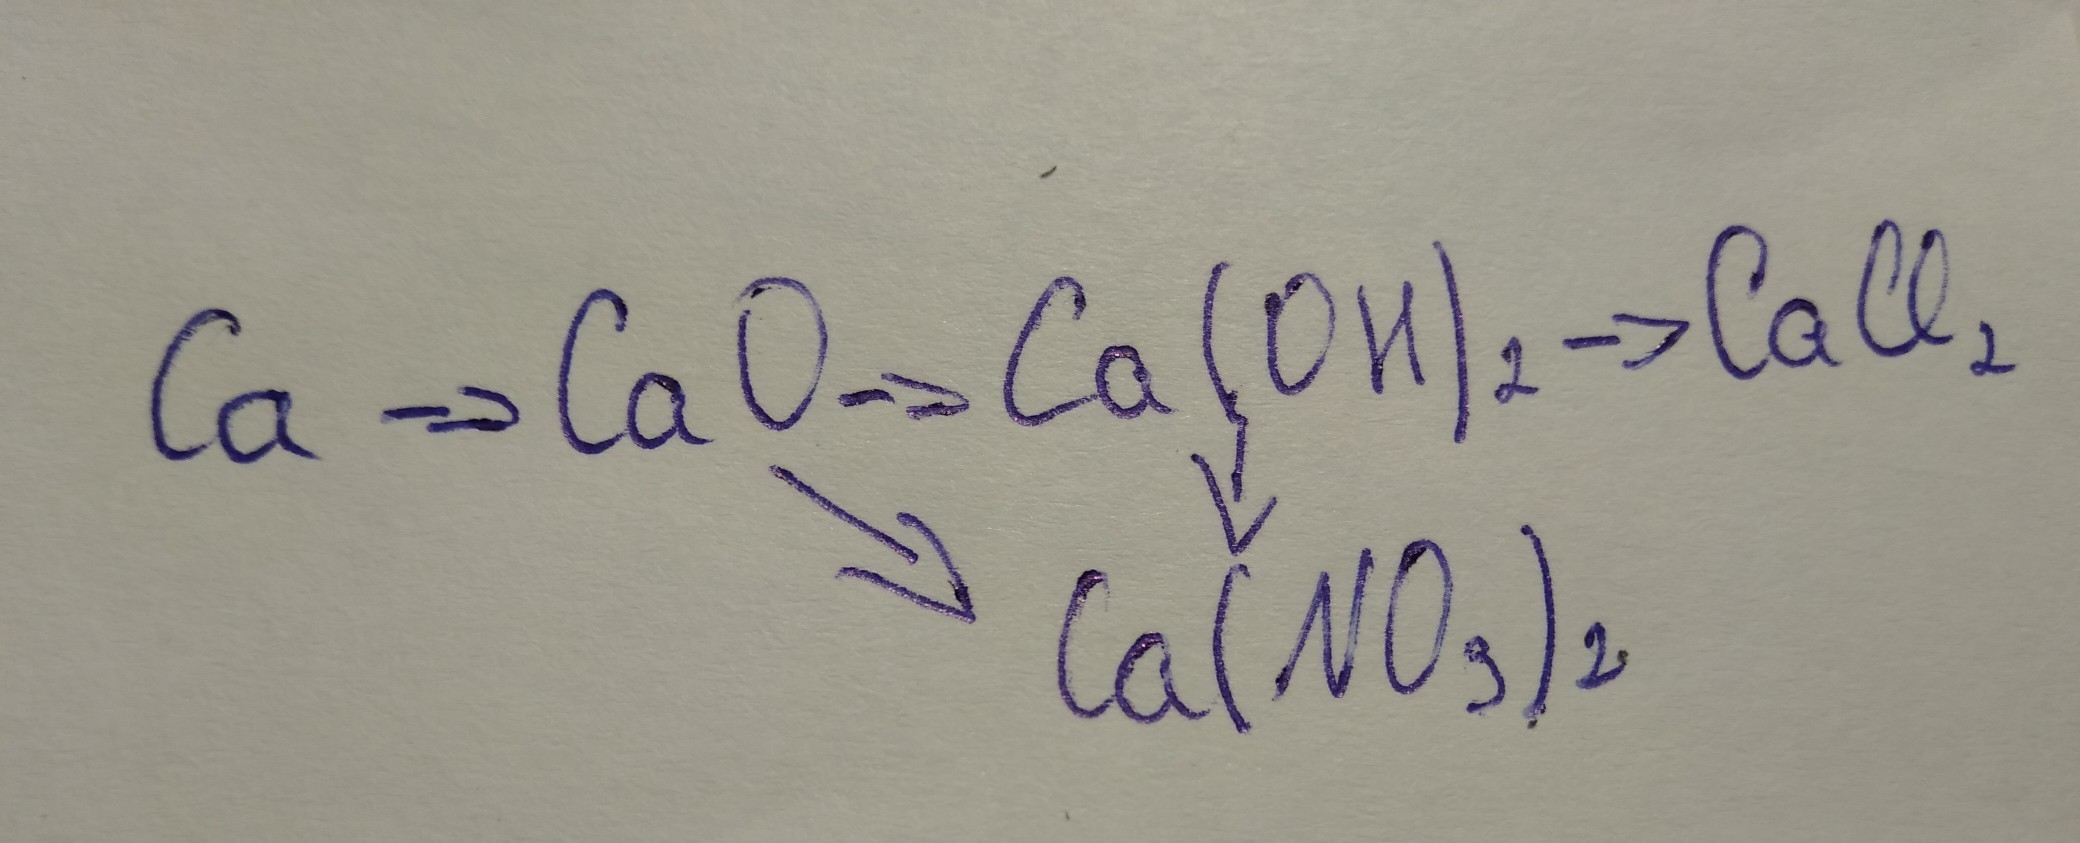 Ca → CaO → Ca(OH)₂ → CaCl₂
↘ ↓
Ca(NO₃)₂